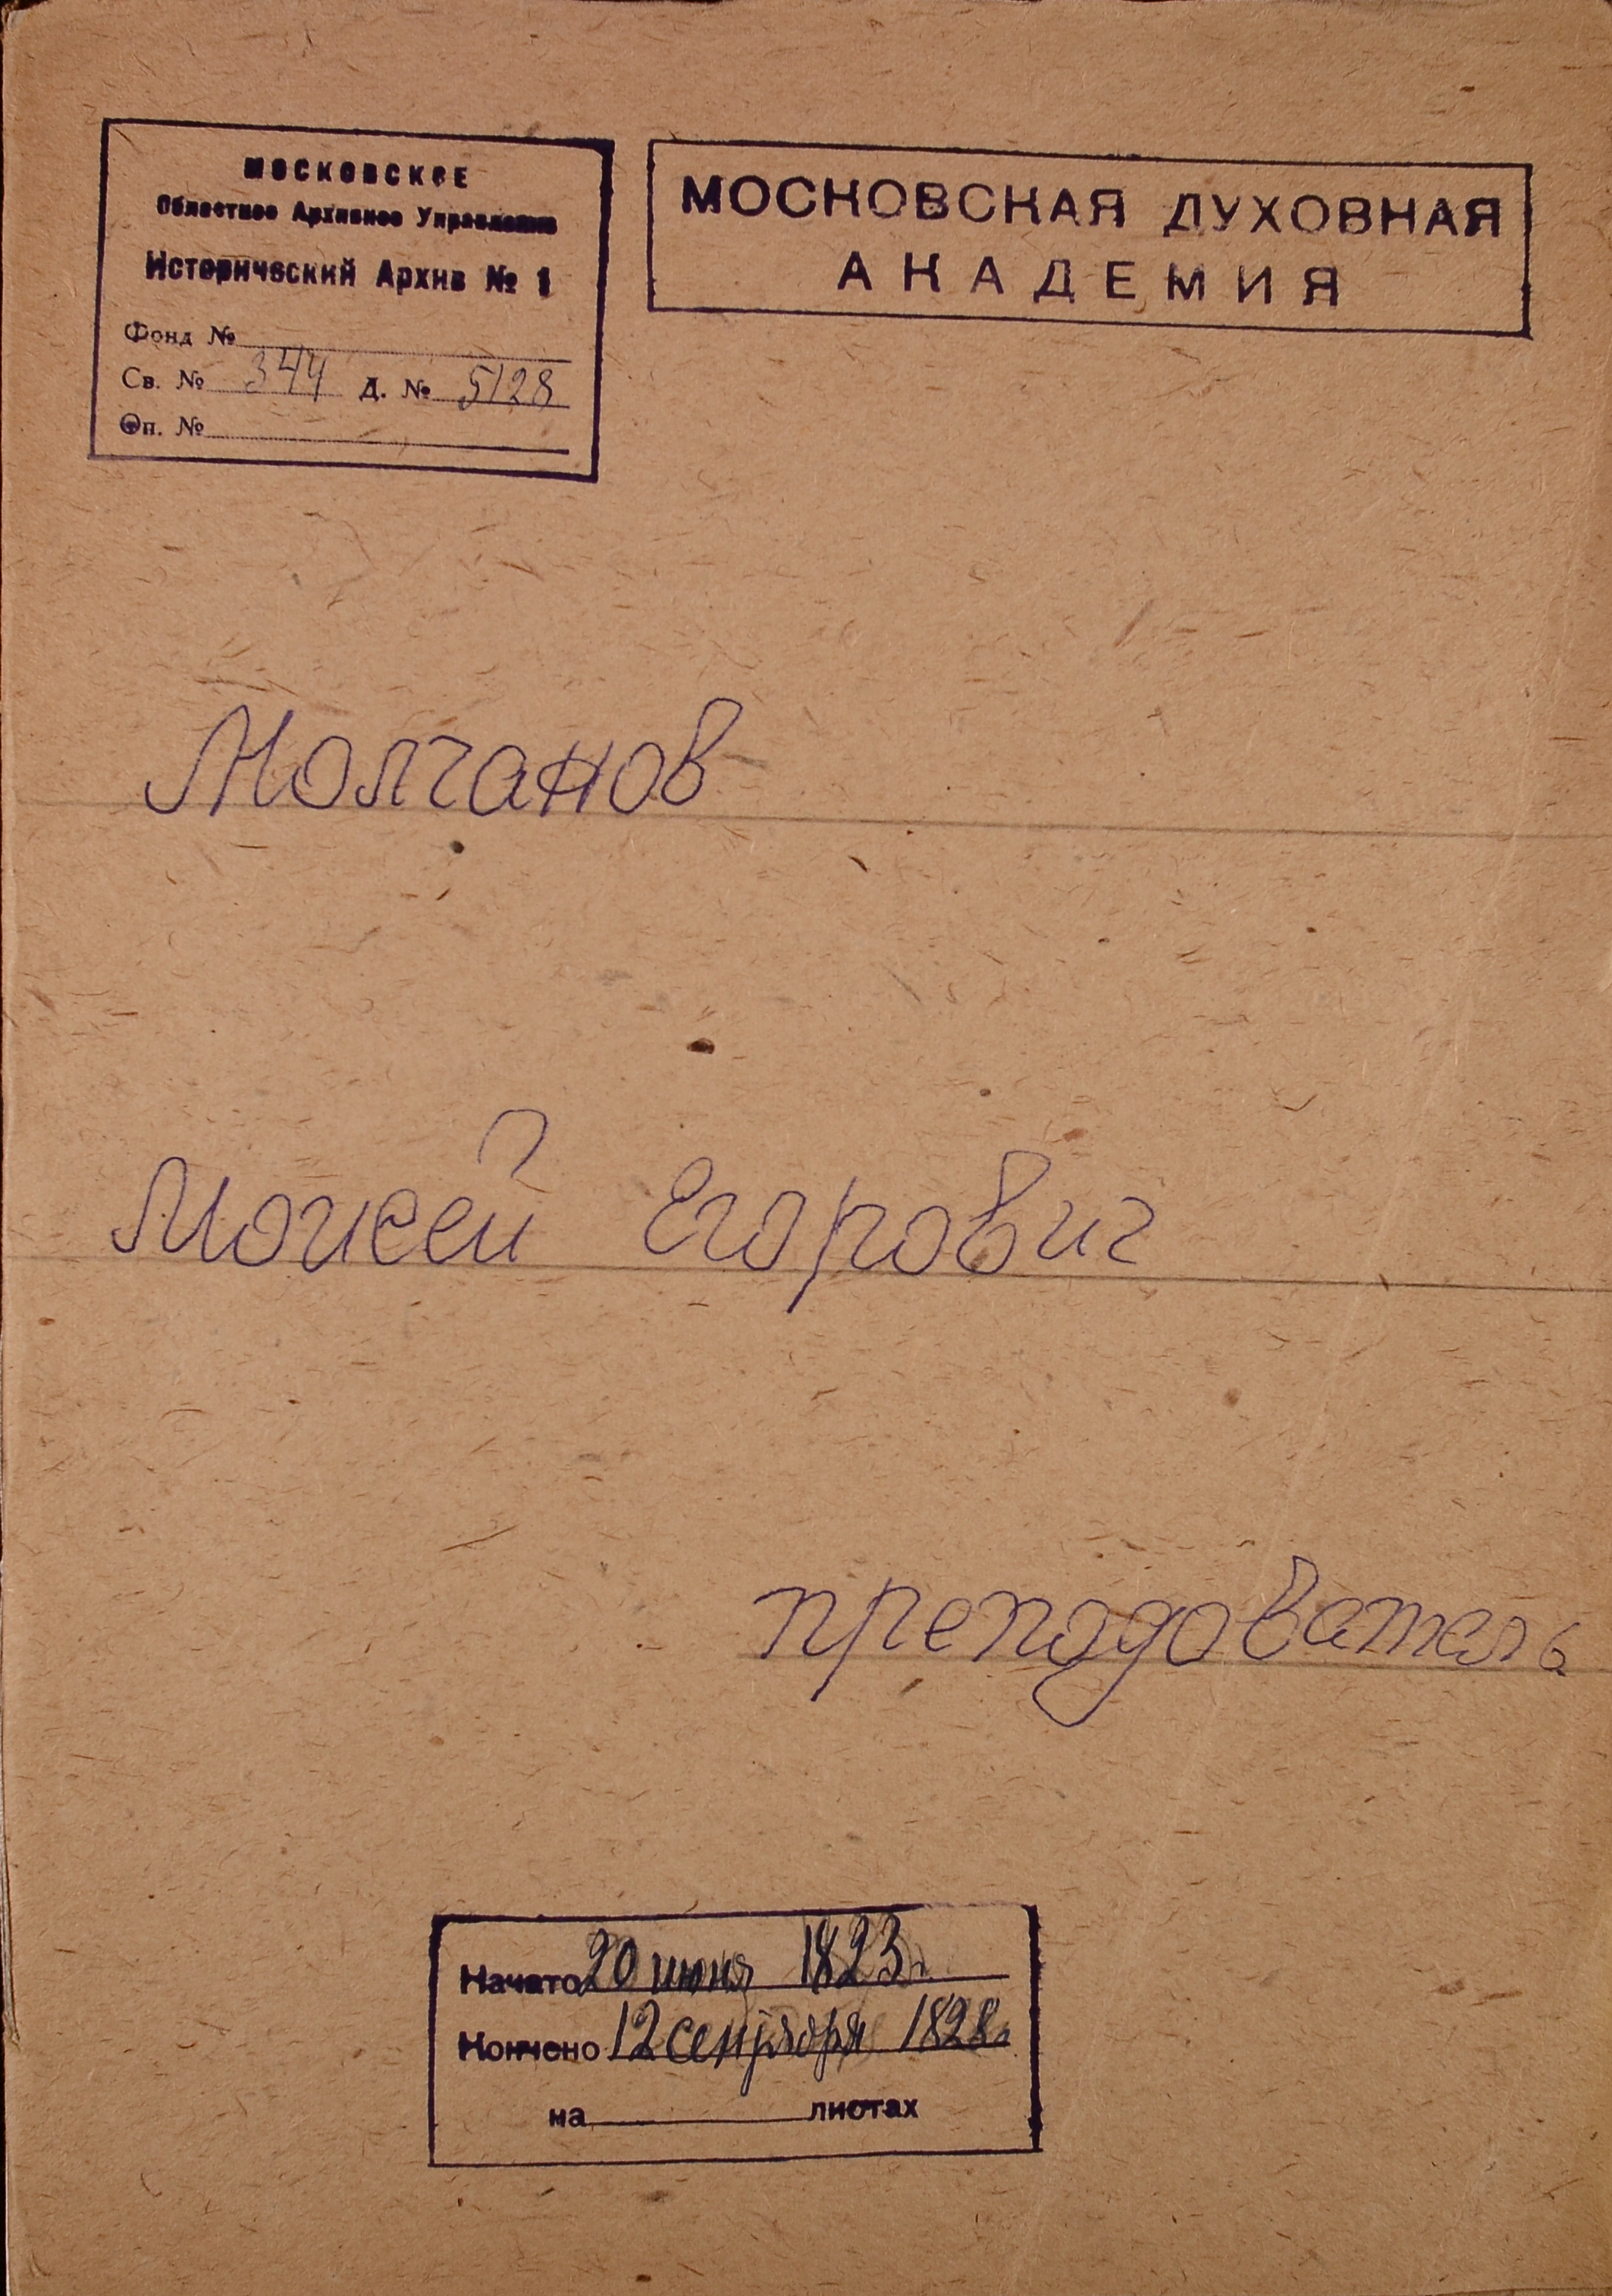 МОСКОВСКОЕ
Областное Архивное Управление
Исторический Архив № 1
Фонд №
Св. № 344 Д. № 5128
Оп. №
МОСКОВСКАЯ ДУХОВНАЯ
АКАДЕМИЯ
Молчанов
Моисей Егорович
преподователь
Начато 20 июня 1823 г.
Кончено 12 сентября 1828 г.
на листах